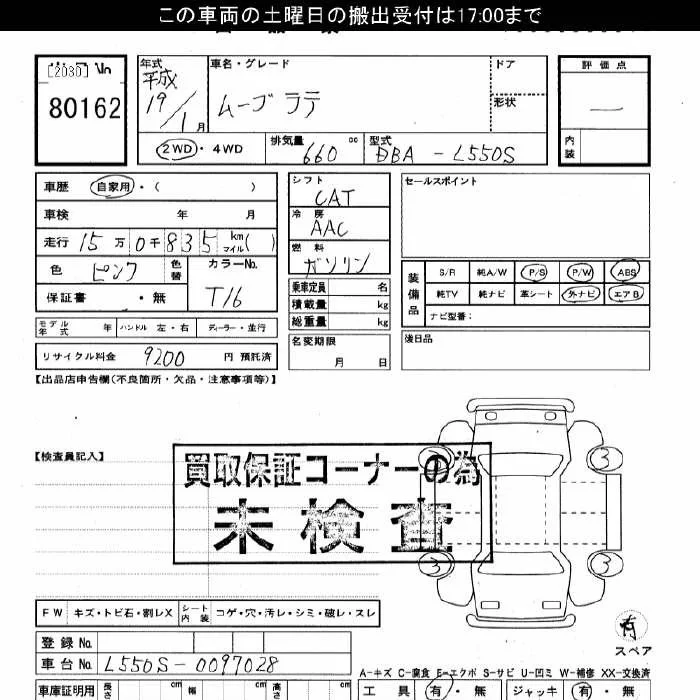 この車両の土曜日の搬出受付は17:00まで
[2030]
80162
年式
平成
19/1月
車名・グレード
ムーブ ラテ
ドア
形状
評価点
―
内装
2WD・4WD
排気量
660 cc
型式
DBA - L550S
車歴 自家用・( )
車検 年 月
走行 15万0千835 km マイル( )
色 ピンク 色替
カラーNo.
T16
保証書 ・無
モデル年式 年 ハンドル 左・右 ディーラー・並行
リサイクル料金 9200 円 預託済
シフト
CAT
冷房
AAC
燃料
ガソリン
乗車定員 名
積載量 kg
総重量 kg
名変期限
月 日
セールスポイント
装備品
S/R 純A/W P/S P/W ABS
純TV 純ナビ 革シート 外ナビ エアB
ナビ型番:
後日品
【出品店申告欄(不良箇所・欠品・注意事項等)】
【検査員記入】
買取保証コーナーの為
未検査
3
3
3
3
有
スペア
FW キズ・トビ石・割レX シート内装 コゲ・穴・汚レ・シミ・破レ・スレ
登録No.
車台No. L550S-0097028
A-キズ C-腐食 E-エクボ S-サビ U-凹ミ W-補修 XX-交換済
車庫証明用 長さ cm 幅 cm 高さ cm
工具 有・無 ジャッキ 有・無